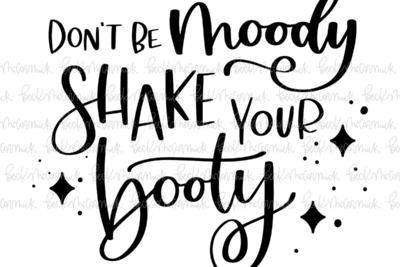 DON'T BE moody
SHAKE YOUR
booty